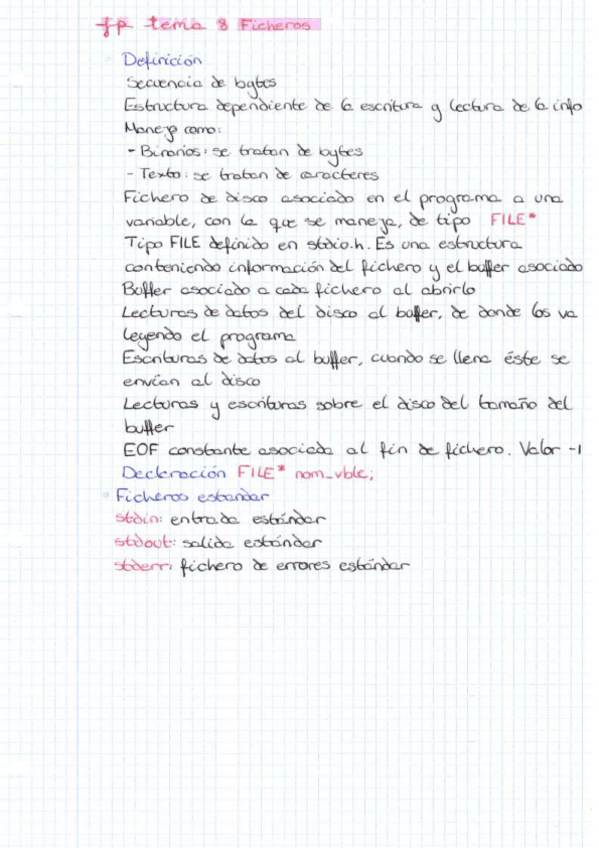 fp tema 8 Ficheros
Definición
Secuencia de bytes
Estructura dependiente de la escritura y lectura de la info
Manejo como:
- Binarios: se tratan de bytes
- Texto: se tratan de caracteres
Fichero de disco asociado en el programa a una
variable, con la que se maneja, de tipo FILE*
Tipo FILE definido en stdio.h. Es una estructura
conteniendo información del fichero y el buffer asociado
Buffer asociado a cada fichero al abrirlo
Lecturas de datos del disco al buffer, de donde los va
leyendo el programa
Escrituras de datos al buffer, cuando se llena éste se
envían al disco
Lecturas y escrituras sobre el disco del tamaño del
buffer
EOF constante asociada al fin de fichero. Valor -1
Declaración FILE* nom_vble;
Ficheros estandar
stdin: entrada estándar
stdout: salida estándar
stderr: fichero de errores estándar